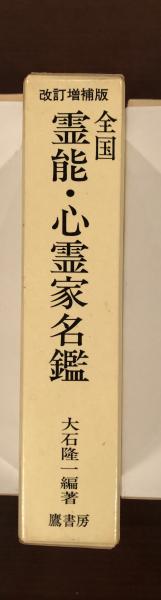 改訂増補版
全国
霊能・心霊家名鑑
大石隆一編著
鷹書房